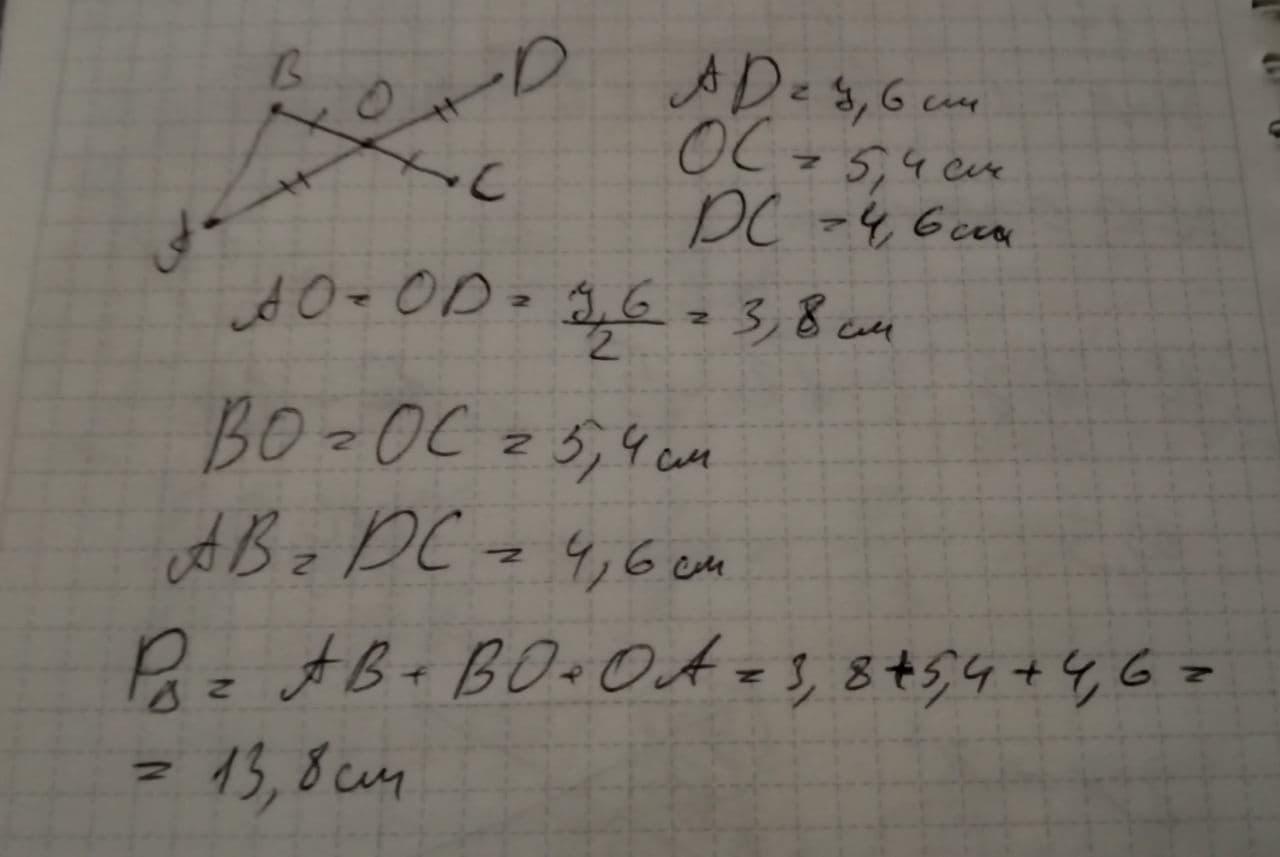 B
O
D
C
A
AD = 7,6 см
OC = 5,4 см
DC = 4,6 см
AO = OD = 7,6/2 = 3,8 см
BO = OC = 5,4 см
AB = DC = 4,6 см
PΔ = AB + BO + OA = 3,8 + 5,4 + 4,6 =
= 13,8 см